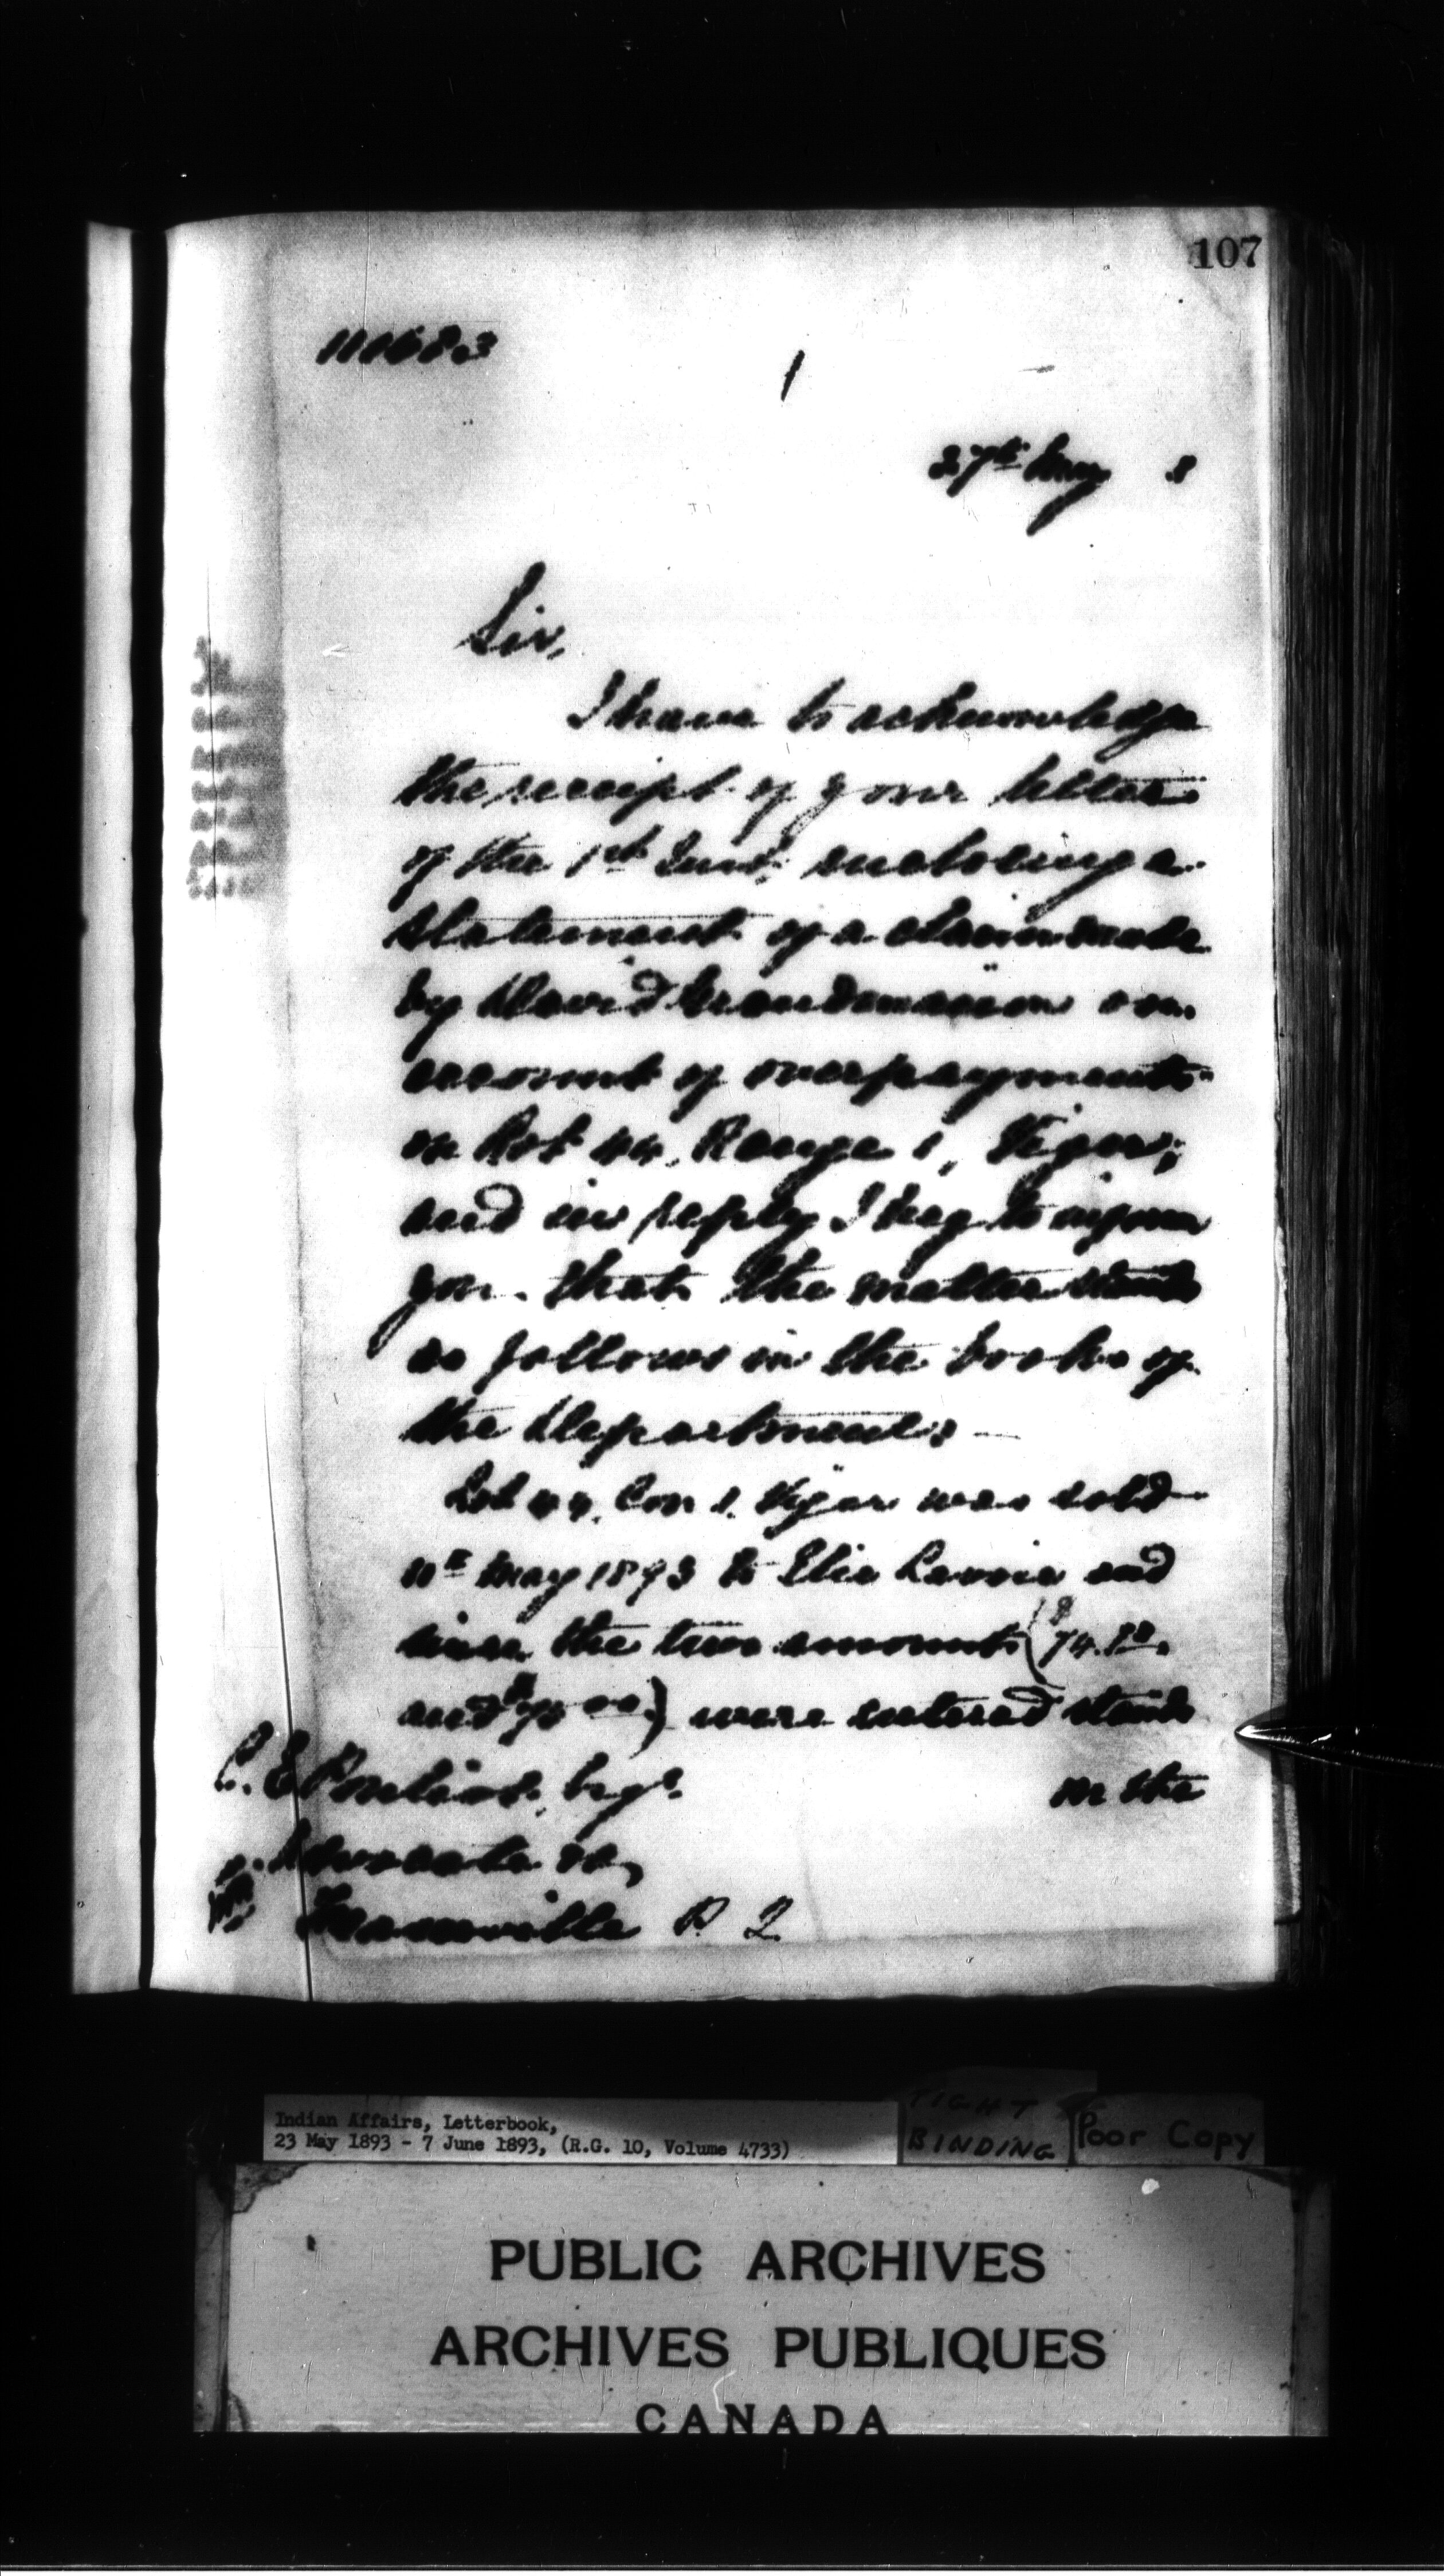 107
111683
1
27th May 3
Sir,
I have to acknowledge
the receipt of your letter
of the 1st Inst, enclosing a
statement of a claim made
by David Grandmaison on
account of overpayments
on Lot 44, Range 1, Viger;
and in reply I beg to inform
you that the matter stands
as follows in the books of
the Department: —
Lot 44, Con 1. Viger was sold
11th May 1893 to Elie Lavoie and
since the two amounts ($74.
and ) were entered stands
C. E. Pouliot, Esqr.
on the
Advocate &c,
Fraserville P. Q.
Indian Affairs, Letterbook,
23 May 1893 - 7 June 1893, (R.G. 10, Volume 4733)
TIGHT
BINDING
Poor Copy
PUBLIC ARCHIVES
ARCHIVES PUBLIQUES
CANADA